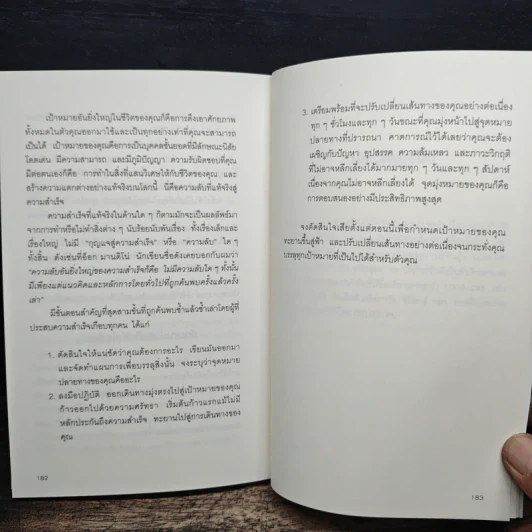 เป้าหมายอันยิ่งใหญ่ในชีวิตของคุณก็คือการดึงเอาศักยภาพ
ทั้งหมดในตัวคุณออกมาใช้และเป็นทุกอย่างเท่าที่คุณจะสามารถ
เป็นได้ เป้าหมายของคุณคือการเป็นบุคคลชั้นยอดที่มีลักษณะนิสัย
โดดเด่น มีความสามารถ และมีภูมิปัญญา ความรับผิดชอบที่คุณ
มีต่อตนเองก็คือ การทำในสิ่งที่แสนวิเศษให้กับชีวิตของคุณ และ
สร้างความแตกต่างอย่างแท้จริงบนโลกนี้ นี่คือความลับที่แท้จริงสู่
ความสำเร็จ
ความสำเร็จที่แท้จริงในด้านใด ๆ ก็ตามมักจะเป็นผลลัพธ์มา
จากการทำหรือไม่ทำสิ่งต่าง ๆ นับร้อยนับพันเรื่อง ทั้งเรื่องเล็กและ
เรื่องใหญ่ ไม่มี "กุญแจสู่ความสำเร็จ" หรือ "ความลับ" ใด ๆ
ทั้งสิ้น ดังเช่นที่อ็อก มานดิโน่ นักเขียนชื่อดังเคยบอกกับผมว่า
"ความลับอันยิ่งใหญ่ของความสำเร็จก็คือ ไม่มีความลับใด ๆ ทั้งนั้น
มีเพียงแค่แนวคิดและหลักการโดยทั่วไปที่ถูกค้นพบครั้งแล้วครั้ง
เล่า"
มีขั้นตอนสำคัญที่สุดสามขั้นที่ถูกค้นพบซ้ำแล้วซ้ำเล่าโดยผู้ที่
ประสบความสำเร็จเกือบทุกคน ได้แก่
1. ตัดสินใจให้แน่ชัดว่าคุณต้องการอะไร เขียนมันออกมา
และจัดทำแผนการเพื่อบรรลุสิ่งนั้น จงระบุว่าจุดหมาย
ปลายทางของคุณคืออะไร
2. ลงมือปฏิบัติ ออกเดินทางมุ่งตรงไปสู่เป้าหมายของคุณ
ก้าวออกไปด้วยความศรัทธา เริ่มต้นก้าวแรกแม้ไม่มี
หลักประกันถึงความสำเร็จ ทะยานไปสู่การเดินทางของ
คุณ
182
3. เตรียมพร้อมที่จะปรับเปลี่ยนเส้นทางของคุณอย่างต่อเนื่อง
ทุก ๆ ชั่วโมงและทุก ๆ วันขณะที่คุณมุ่งหน้าไปสู่จุดหมาย
ปลายทางที่ปรารถนา คาดการณ์ไว้ได้เลยว่าคุณจะต้อง
เผชิญกับปัญหา อุปสรรค ความล้มเหลว และภาวะวิกฤติ
ที่ไม่อาจหลีกเลี่ยงได้มากมายทุก ๆ วันและทุก ๆ สัปดาห์
เนื่องจากคุณไม่อาจหลีกเลี่ยงได้ จุดมุ่งหมายของคุณก็คือ
การตอบสนองอย่างมีประสิทธิภาพสูงสุด
จงตัดสินใจเสียตั้งแต่ตอนนี้เพื่อกำหนดเป้าหมายของคุณ
ทะยานขึ้นสู่ฟ้า และปรับเปลี่ยนเส้นทางอย่างต่อเนื่องจนกระทั่งคุณ
บรรลุทุกเป้าหมายที่เป็นไปได้สำหรับตัวคุณ
183